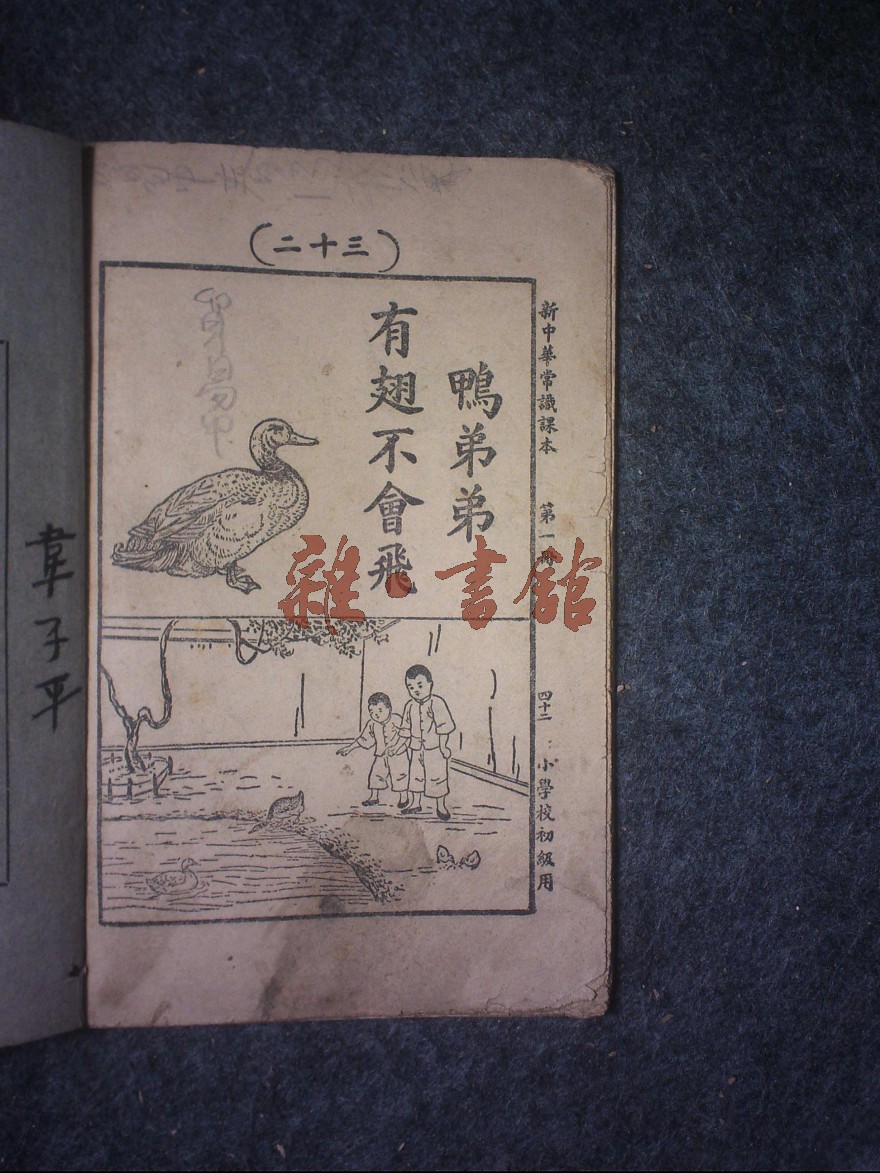 (三十二)
鴨弟弟
有翅不會飛
新中華常識課本 第一冊 四十二 小學校初級用
韋子平
雜·書館